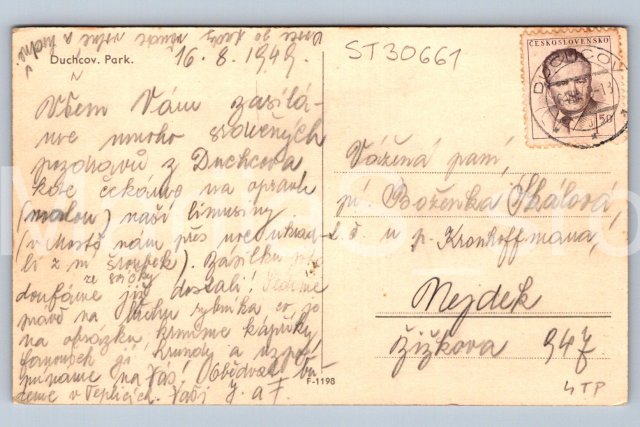 Duchcov. Park.
16.8.1949.
ST30661
ČESKOSLOVENSKO
DUCHCOV
Všem Vám zasílá-
me mnoho srdečných
pozdravů z Duchcova
kde čekáme na opravu
(malou) naší limusiny
(v Mostě nám přes noc ukrad-
li z ní šroubek). Zásilku
ze svíčky
doufáme již dostali!
právě na břehu rybníka co je
na obrázku, krmíme kapříky
a vzpo-
mínáme na Vás! Obědvat bu-
deme v Teplicích. Vaši J. a F.
F-1198
Vážená paní,
pí. Boženka Skálová,
u p. Kronhoffmana,
Nejdek
Žižkova 947
4TP